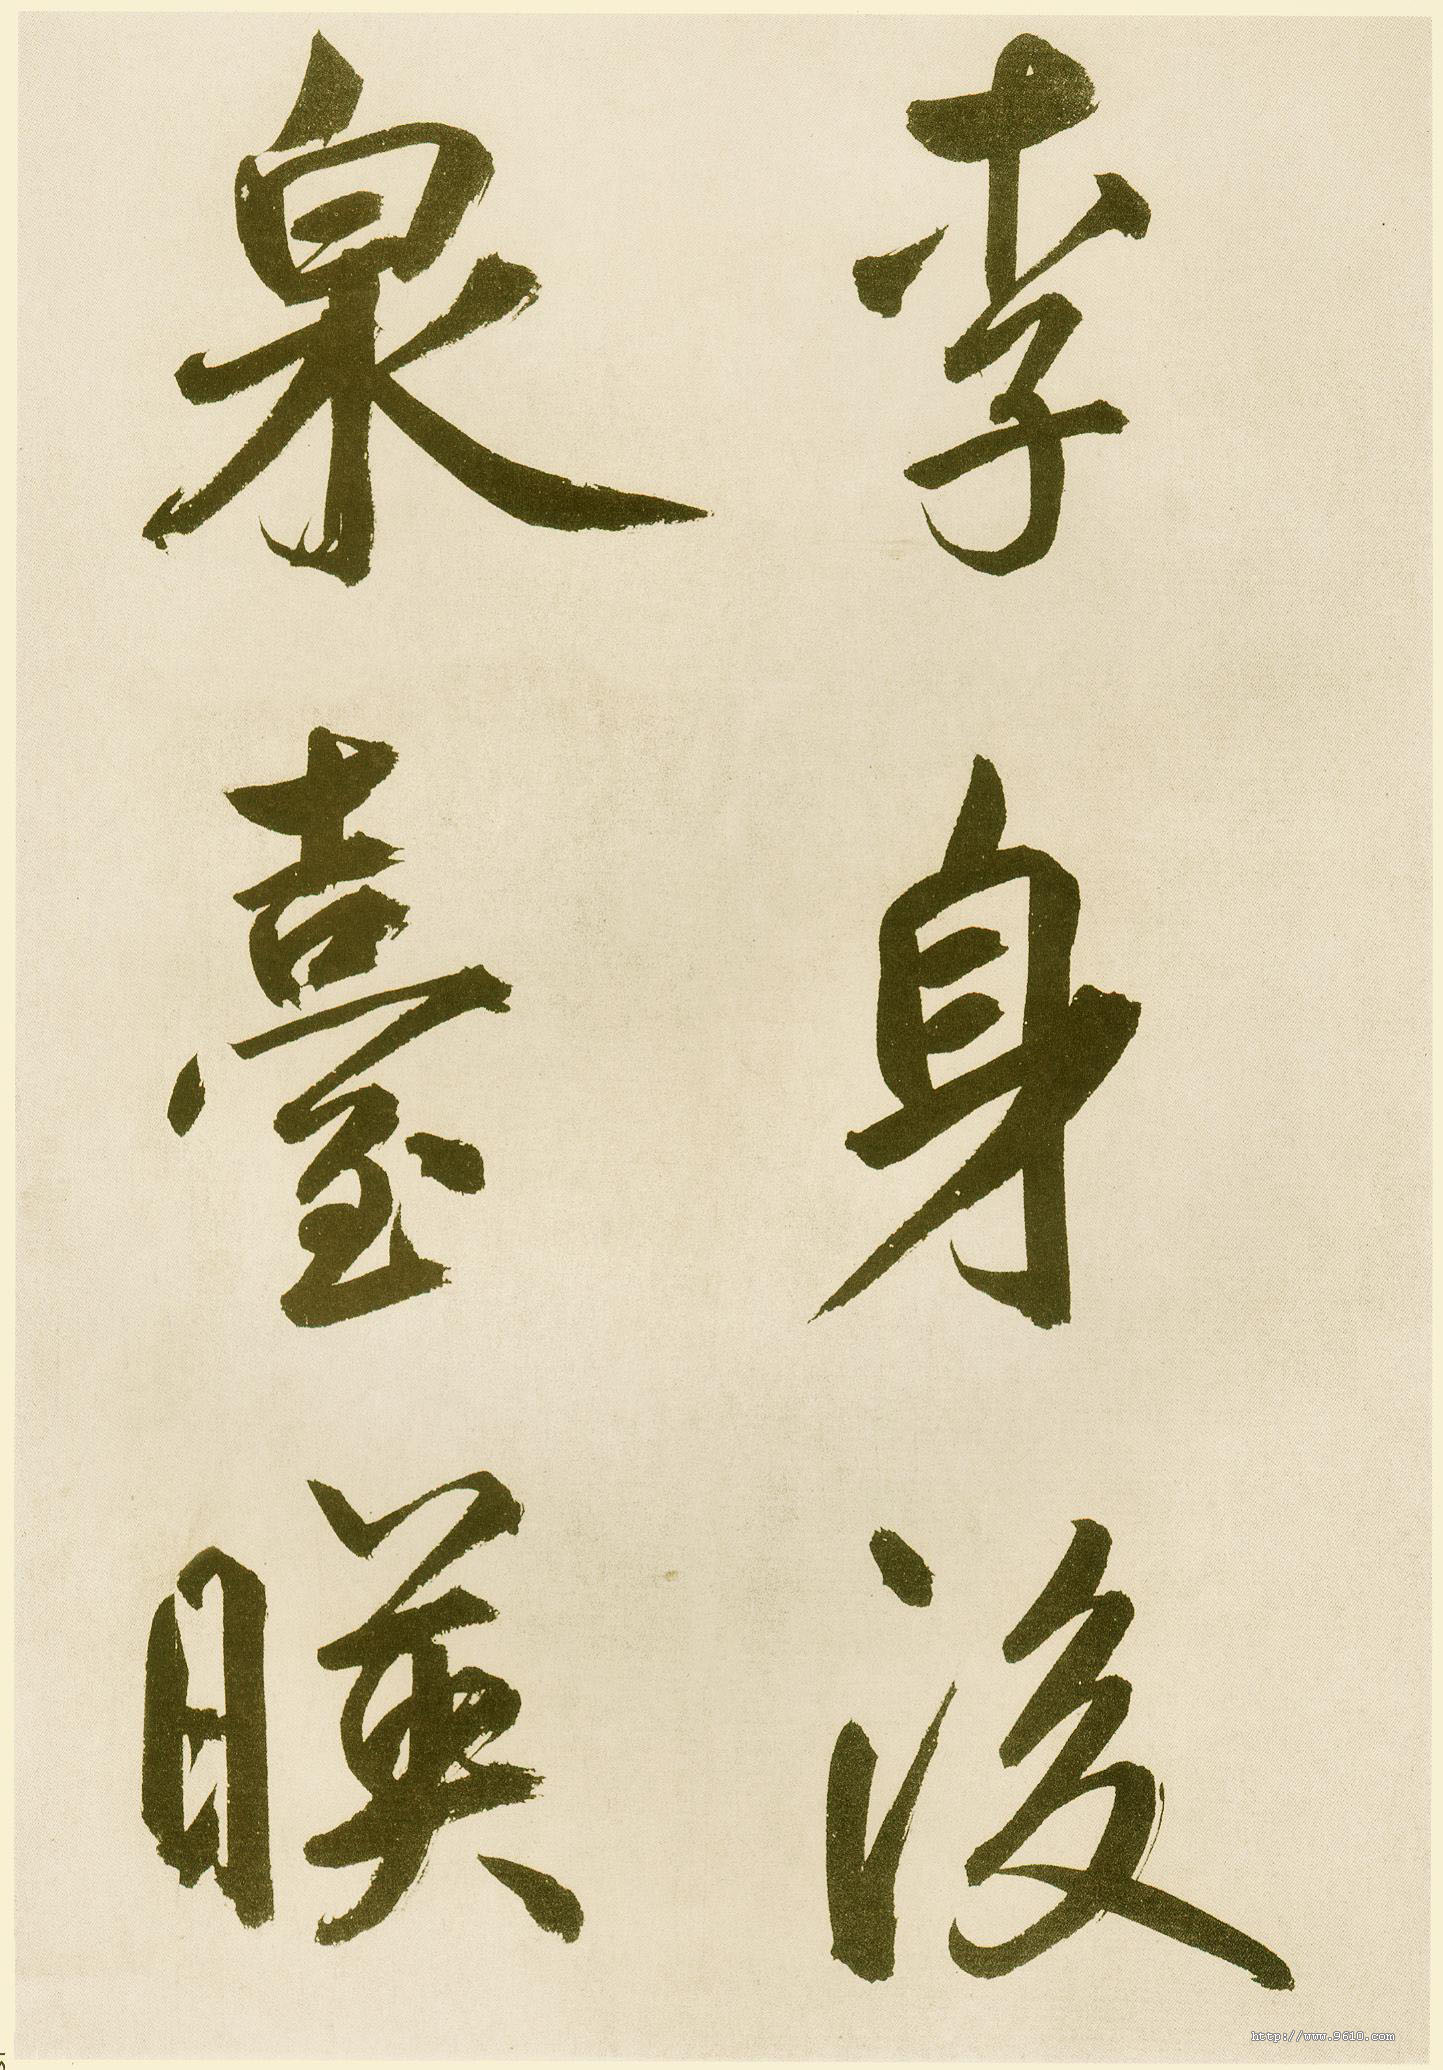 李身後
泉臺暎
http://www.9610.com